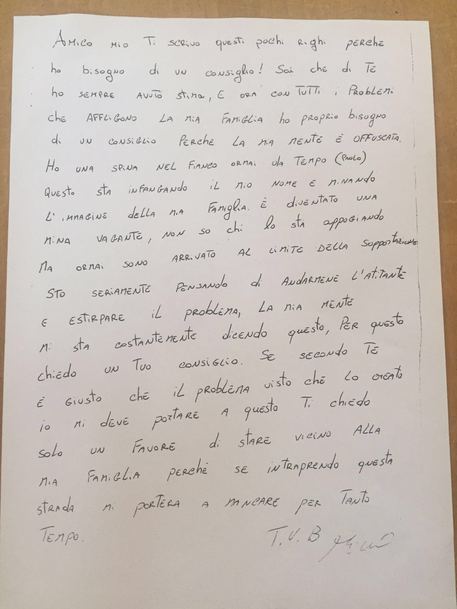 AMICO MIO TI SCRIVO QUESTI POCHI RIGHI PERCHE
HO BISOGNO DI UN CONSIGLIO! SAI CHE DI TE
HO SEMPRE AVUTO STIMA, E ORA CON TUTTI I PROBLEMI
CHE AFFLIGONO LA MIA FAMIGLIA HO PROPRIO BISOGNO
DI UN CONSIGLIO PERCHE LA MIA MENTE È OFFUSCATA.
HO UNA SPINA NEL FIANCO ORMAI DA TEMPO (PAOLO)
QUESTO STA INFANGANDO IL MIO NOME E MINANDO
L'IMMAGINE DELLA MIA FAMIGLIA. È DIVENTATO UNA
MINA VAGANTE, NON SO CHI LO STA APPOGIANDO
MA ORMAI SONO ARRIVATO AL LIMITE DELLA SOPPORTAZIONE
STO SERIAMENTE PENSANDO DI ANDARMENE LATITANTE
E ESTIRPARE IL PROBLEMA, LA MIA MENTE
MI STA COSTANTEMENTE DICENDO QUESTO, PER QUESTO
CHIEDO UN TUO CONSIGLIO. SE SECONDO TE
È GIUSTO CHE IL PROBLEMA VISTO CHE LO CREATO
IO MI DEVE PORTARE A QUESTO TI CHIEDO
SOLO UN FAVORE DI STARE VICINO ALLA
MIA FAMIGLIA PERCHÈ SE INTRAPRENDO QUESTA
STRADA MI PORTERA A MANCARE PER TANTO
TEMPO. T.V.B